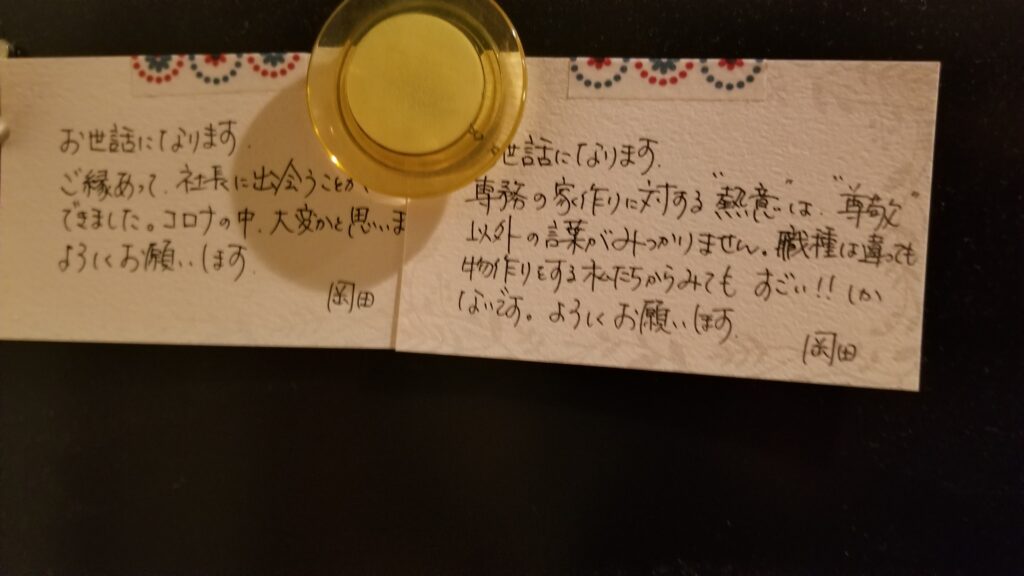 お世話になります.
ご縁あって、社長に出会うことが
できました。コロナの中、大変かと思いま
よろしくお願いします.
岡田
世話になります.
専務の家作りに対する"熱意"は、"尊敬"
以外の言葉がみつかりません。職種は違っても
物作りをする私たちからみても すごい!! しか
ないです。よろしくお願いします.
岡田